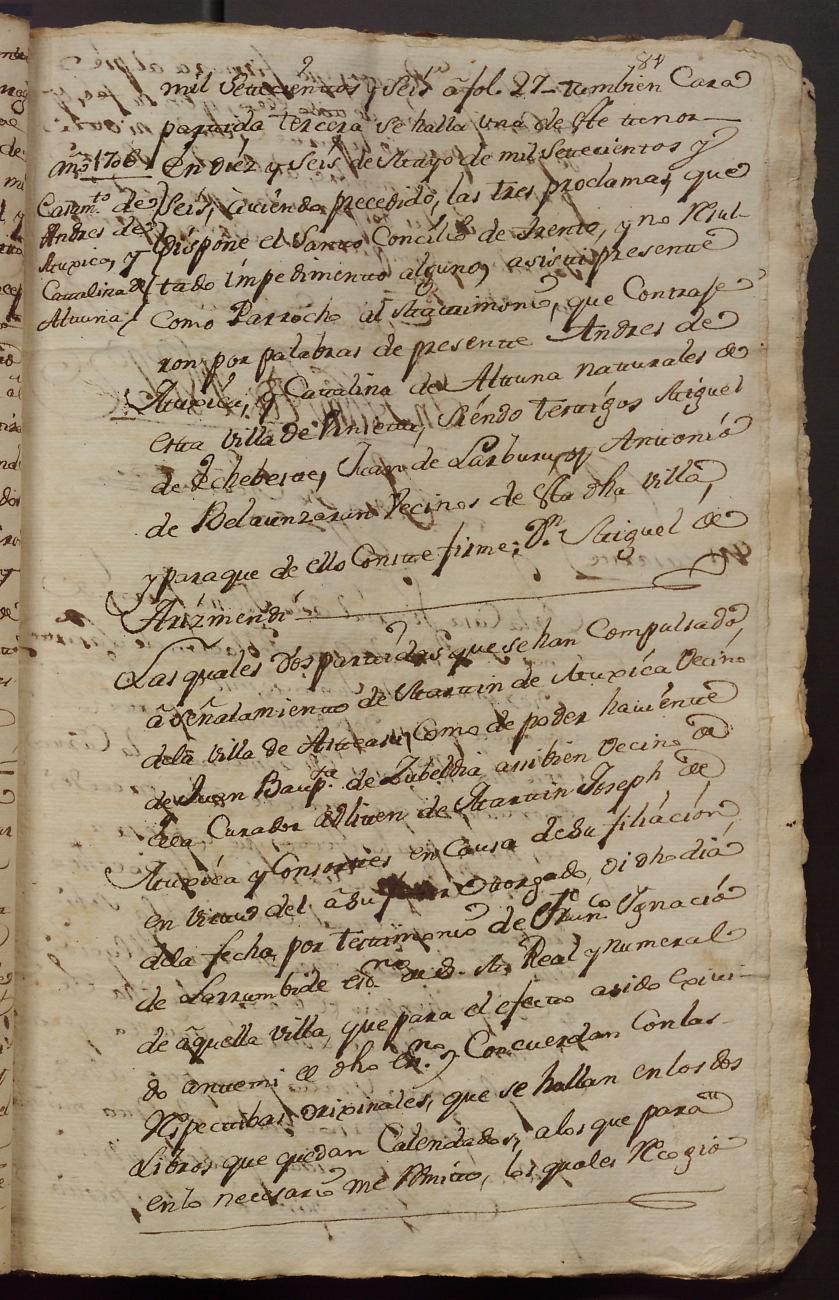 84
mil Setecientos y Seis â fol. 27 tambien Cara
partida tercera se halla una de este tenor
En diez y Seis de Mayo de mil Setecientos y
Año 1706
Casamto. de
Andres de
Atuxica, y
Catalina de
Altuna
Seis, aviendo precedido, las tres proclamas, que
dispone el Santo Concilio de Trento, y no Resul-
tado impedimento alguno, asisti presente
como Parrocho al Matrimonio, que Contraje
ron por palabras de presente Andres de
Atuxica, y Catalina de Altuna naturales de
esta villa de siendo testigos Miguel
de Echeberae, Juan de Larburu, y Antonio
de Belaunzaran Vecinos de esta dha villa,
y paraque de ello Conste firme; Dn. Miguel de
Arizmendi
Las quales dos partidas que se han Compulsado
â señalamiento de Martin de Atuxica Vecino
dela villa de como de poder haviente
de Juan Baupta. de Zubeldia assibien Vecino de
ella Curador adlitem de Martin Joseph de
Atuxica y Consortes en Causa de su filiación,
en virtud del â su favor otorgado, oi dho dia
dela fecha, por testimonio de Franco. Ygnacio
de Larrumbide esno. de S. M. Real y numeral
de âquella villa, que para el efecto asido exivi-
do ante mi el dho Esno. y Concuerdan Conlas
Respectibas orixinales, que se hallan en los dos
Libros que quedan Calendados, a los que para
en lo necesario me Remito, los quales Recogio